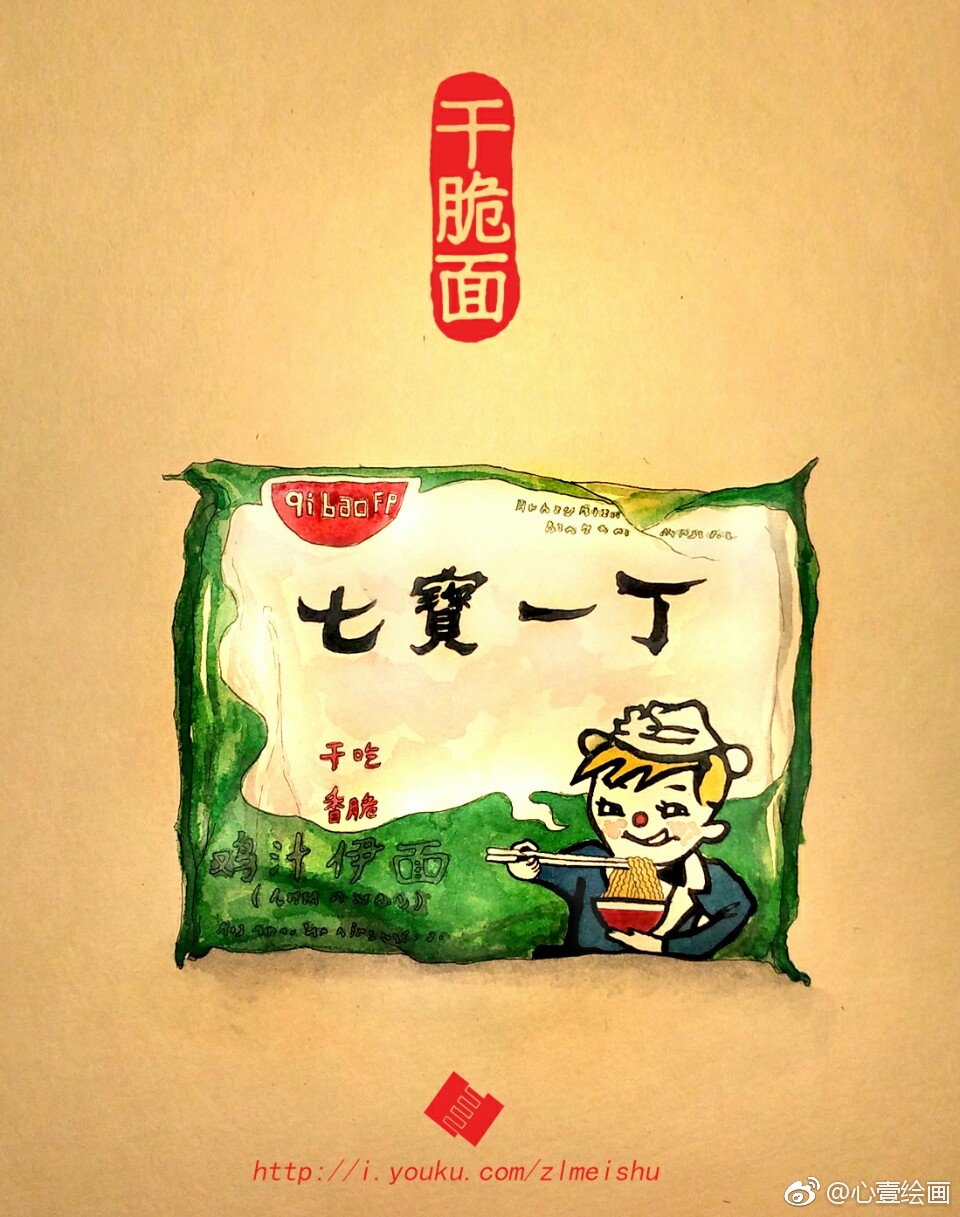 干脆面
qi bao FP
七寶一丁
干吃
香脆
鸡汁伊面
http://i.youku.com/zlmeishu
@心壹绘画